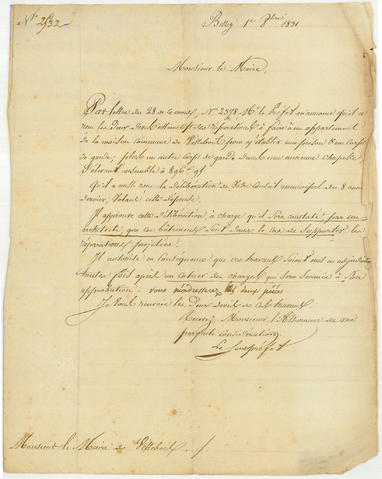 N° 2532
Belley 1er 7bre 1831
Monsieur le Maire,
Par lettre du 28 de ce mois, N° 2378 Mr le Préfet m'annonce qu'il a
vu les deux devis estimatifs des réparations à faire à un appartement
de la maison commune de pour y établir un d'un corps
de garde, et à un autre corps de garde dans une ancienne chapelle
s'élevant ensemble à 896f 95
Qu'il a la délibération de votre Conseil municipal du 8 mai
dernier, votant cette dépense.
Il approuve cette délibération, à charge qu'il soit constaté par un
architecte, que ces bâtiments sont dans le cas de supporter les
réparations projetées.
Il autorise en conséquence que ces travaux soient mis en adjudication
toutes fois après un cahier des charges qui sera soumis à son
approbation. vous m'adresserez les deux pièces
Je vous renvoie les deux devis de ces travaux
Recevez, Monsieur, l'assurance de ma
parfaite considération
Le Sous préfet
Monsieur le Maire de